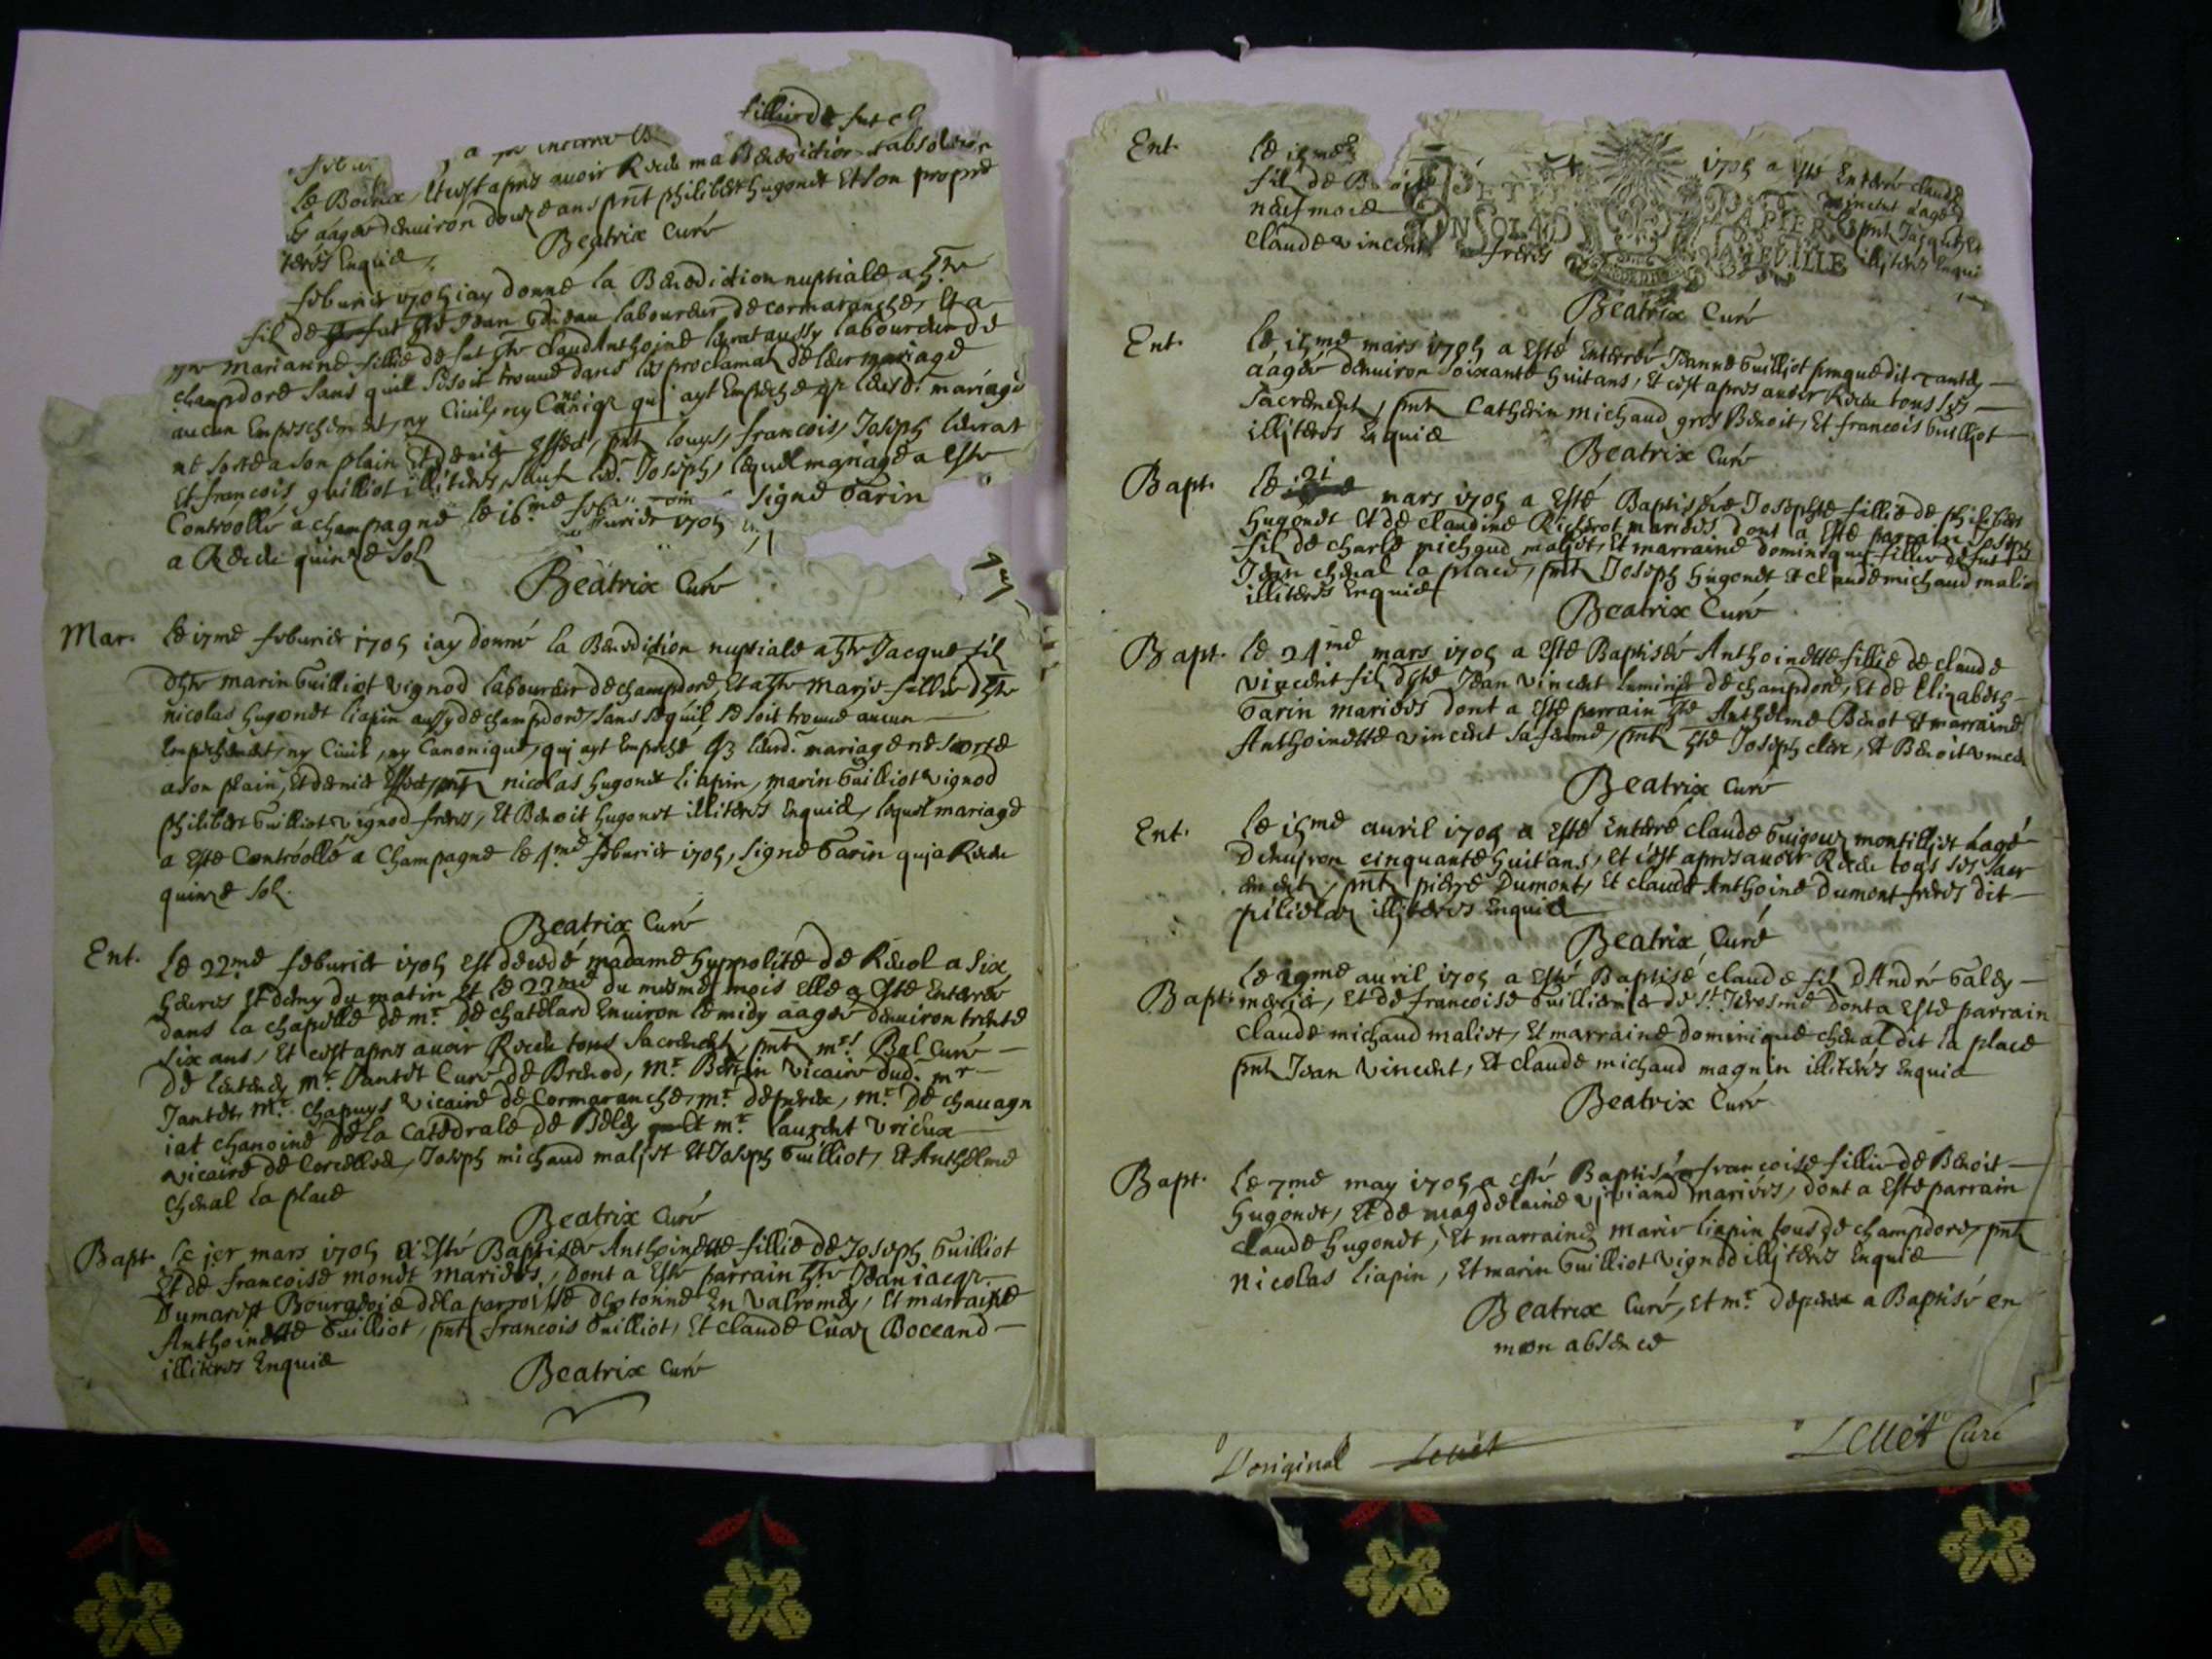 fillie de fut cl
le Boitix, et cest apres auoir Receu ma Benediction et absolution
aagee denuiron douze ans pnt philibert hugonet Et son propre
teres Enquis
Beatrix Curé
feburier 1705 iay donné la Benediction nuptiale a hte
fil de fut hte Jean laboureur de cormaranche, Et a
hte Marianne fillie de fut hte Claud Anthoine leurat aussy laboureur de
champdore sans quil se soit trouué dans les proclamat de leur mariage
aucun Empeschement, ny Ciuil, ny Canoniq qui ayt Empeché q leurd. mariage
ne sorte a son plain et dernier effect, pnt louys, francois, Joseph leurat
Et francois guilliot illiteres, sauf led. Joseph, lequel mariage a este
Controollé a champagne le 16me feburier 1705 signé Garin
a Receu quinze sol
Beatrix Curé
Mar. Le 17me feburier 1705 iay donné la Benediction nuptiale a hte Jacque fil
dhte marin Guilliot vignod laboureur de champdore, Et a hte Marie fillie dhte
nicolas hugonet liapin aussy de champdore, sans sequil se soit trouué aucun
Empechement, ny Ciuil, ny Canonique, qui ayt Empeché q leurd. mariage ne sorte
a son plain, et dernier effect, pnt nicolas hugonet liapin, marin Guilliot vignod
philibert Guilliot vignod freres, Et Benoit hugonet illiteres Enquis, lequel mariage
a Esté Controollé a Champagne le 4me feburier 1705, signé Garin qui a Receu
quinze sol.
Beatrix Curé
Ent. Le 22me feburier 1705 est decedé madame hyppolite de Reuol a six
heures et demy du matin et le 23me du mesme mois elle a Esté Enterée
dans la chapelle de mr. De chatelard Enuiron le midy aagee denuiron trente
six ans, Et cest apres auoir Receu tous Sacrement, pnt mrs. Bal Curé
De lentenay mr. Jantet Curé de Brenod, mr. Bertin vicaire dud. mr
Jantet, mr. chapuys vicaire de Cormaranche, mr. deperex, mr. De chauagn
iat chanoine de la Catedrale de Beley et mr. laurent vrieux
vicaire de Corcelles, Joseph michaud maliet Et Joseph Guilliot, Et Anthelme
cheual la place
Beatrix Curé
Bapt. Le jer mars 1705 a Esté Baptisée Anthoinette fillie de Joseph Guilliot
Et de francoise monet mariées, dont a Esté parrain hte Jean iacq
Dumarest Bourgeois de la parroisse dhotonne En valromey, Et marraine
Anthoinette Guilliot, pnt francois Guilliot, Et claude Cuaz Boccand
illiteres Enquis
Beatrix Curé
Ent. Le 15me 1705 a esté Enteré claude
fil de Benoit vincent aagé
neuf mois pnt Jacque Et
Claude vincent freres illiteres Enqui
Beatrix Curé
Ent. Le 15me mars 1705 a Esté Enterée Jeanne Guilliot
aagée denuiron soixante huit ans, Et cest apres auoir Receu tous ses
Sacrement, pnt Catherin michaud gros Benoit, Et francois Guilliot
illiteres Enquis
Beatrix Curé
Bapt. Le 21 mars 1705 a Esté Baptisée Josephte fillie de philibert
hugonet Et de claudine Richerot mariées, dont a Esté parrain Joseph
fil de charle michaud maliet, Et marraine dominique fillie de fut
Jean cheual la place, pnt Joseph hugonet Et claude michaud maliet
illiteres Enquis
Beatrix Curé
Bapt. Le 24me mars 1705 a Esté Baptisée Anthoinette fillie de claude
vincent fil dhte Jean vincent luminier de champdore, Et de Elizabeth
Garin mariées dont a Esté parrain hte Anthelme Benot et marraine
Anthoinette vincent sa femme, pnt hte Joseph clerc, Et Benoit vincen
Beatrix Curé
Ent. Le 15me auril 1705 a Esté Enteré claude Guigouz montilliet aagé
denuiron cinquante huit ans, Et cest apres auoir Receu tous ses sacr
ement, pnt pierre Dumont, Et claude Anthoine Dumont freres dit
illiteres Enquis
Beatrix Curé
Bapt. Le 29me auril 1705 a Esté Baptisé claude fil dAndré Galey
mercier, Et de francoise Guillierme de St. Jerosme dont a Esté parrain
Claude michaud maliet, Et marraine dominique cheual dit la place
pnt Jean vincent, Et claude michaud magnin illiteres Enquis
Beatrix Curé
Bapt. Le 7me may 1705 a esté Baptisée francoise fillie de Benoit
hugonet, Et de magdelaine viuiand mariées, dont a Esté parrain
Claude hugonet, Et marraine marie liapin tous de champdore, pnt
nicolas liapin, Et marin Guilliot vignod illiteres Enquis
Beatrix Curé, Et mr. deperex a Baptisé en
mon absence
L'original Leuet
Leuet Curé